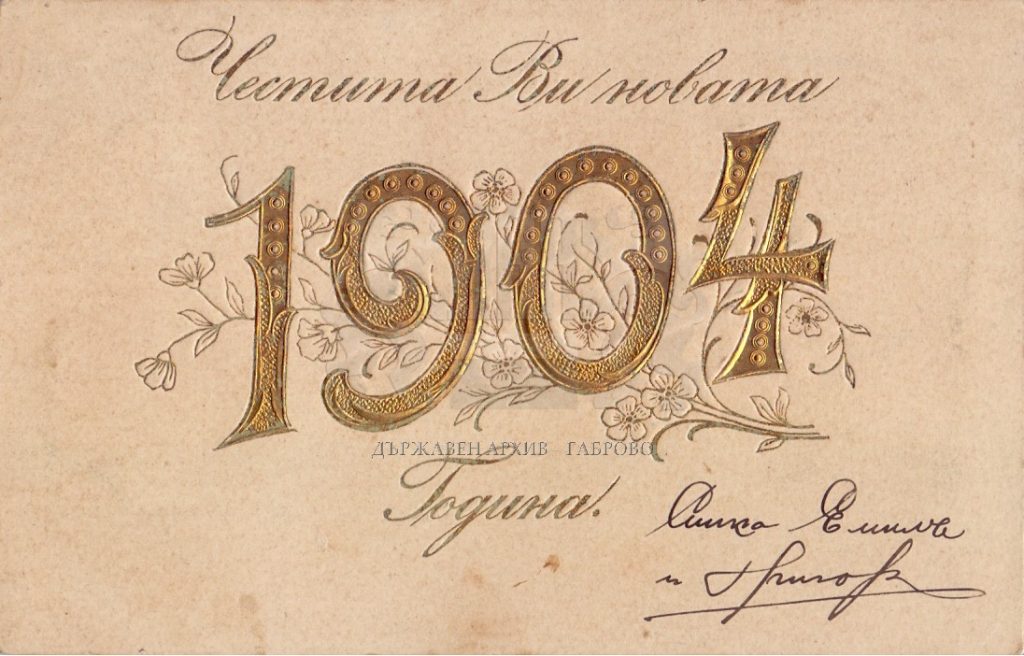 Честита Ви новата
1904
ДЪРЖАВЕН АРХИВ ГАБРОВО
Година!
и Григор